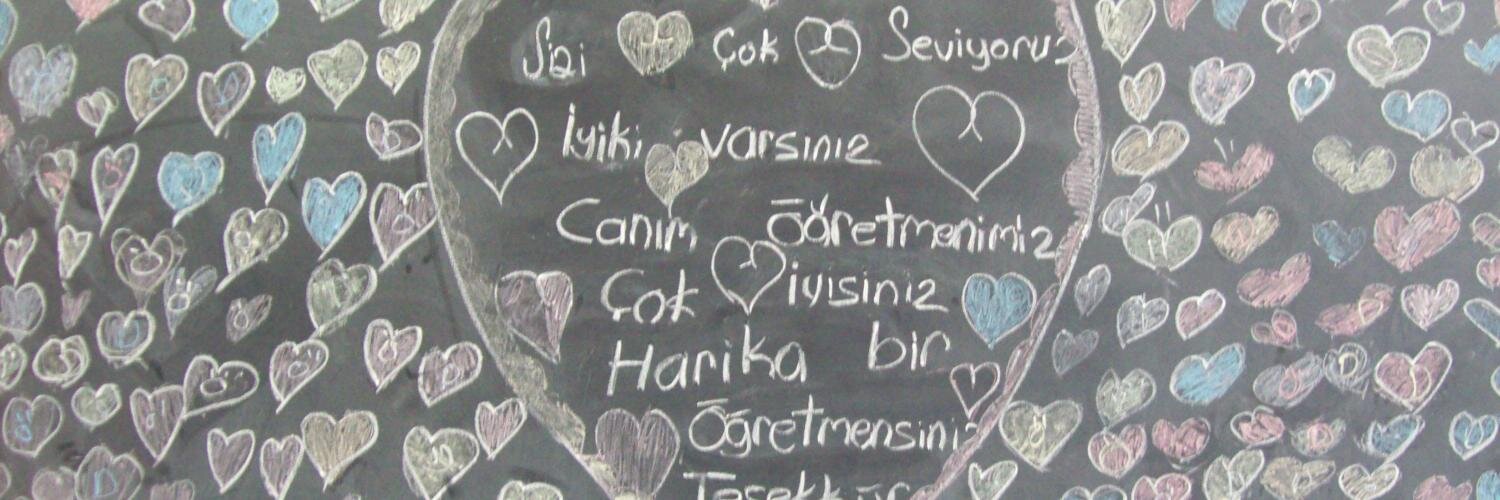 Sizi Çok Seviyoruz
İyiki varsınız
Canım Öğretmenimiz
Çok iyisiniz
Harika bir
Öğretmensiniz
Teşekkür